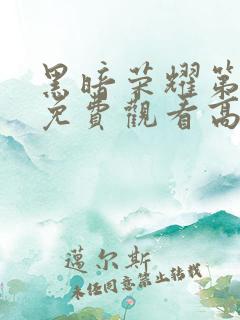 黑暗荣耀第
免費觀看高
蔼尔斯
未经同意禁止转载